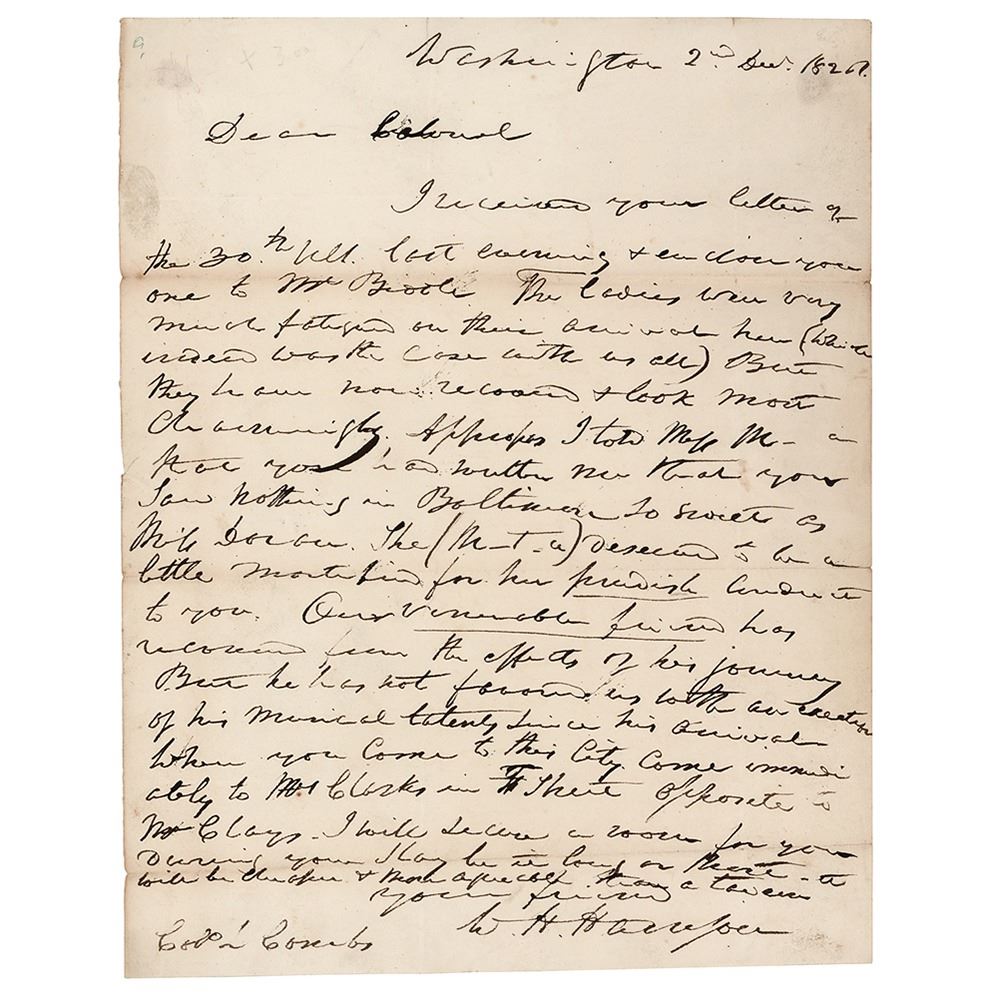 Washington 2nd Decr. 1826.
Dear Colonel
I received your letter of
the 30.th Ult. last evening & enclose you
one to Mr Biddle. The Ladies were very
much fatigued on their arrival here (which
indeed was the case with us all) But
they have now recovered & look most
Charmingly. Appropos I told Miss M-
that you had written me that you
Saw nothing in Baltimore so sweet as
Miss The (M-T-a) deserved to be a
little mortified for her prudish conduct
to you. Our Venerable friend has
recovered from the effects of his journey
But he has not favoured us with an exertion
of his musical talents since his arrival
When you Come to this City Come immedi
ately to Mrs Clarks in F Street opposite to
Mr Clays. I will secure a room for you
during your stay be it long or short - it
will be cheaper & more agreeable than a tavern
your friend
W. H. Harrison
Col'l Combs